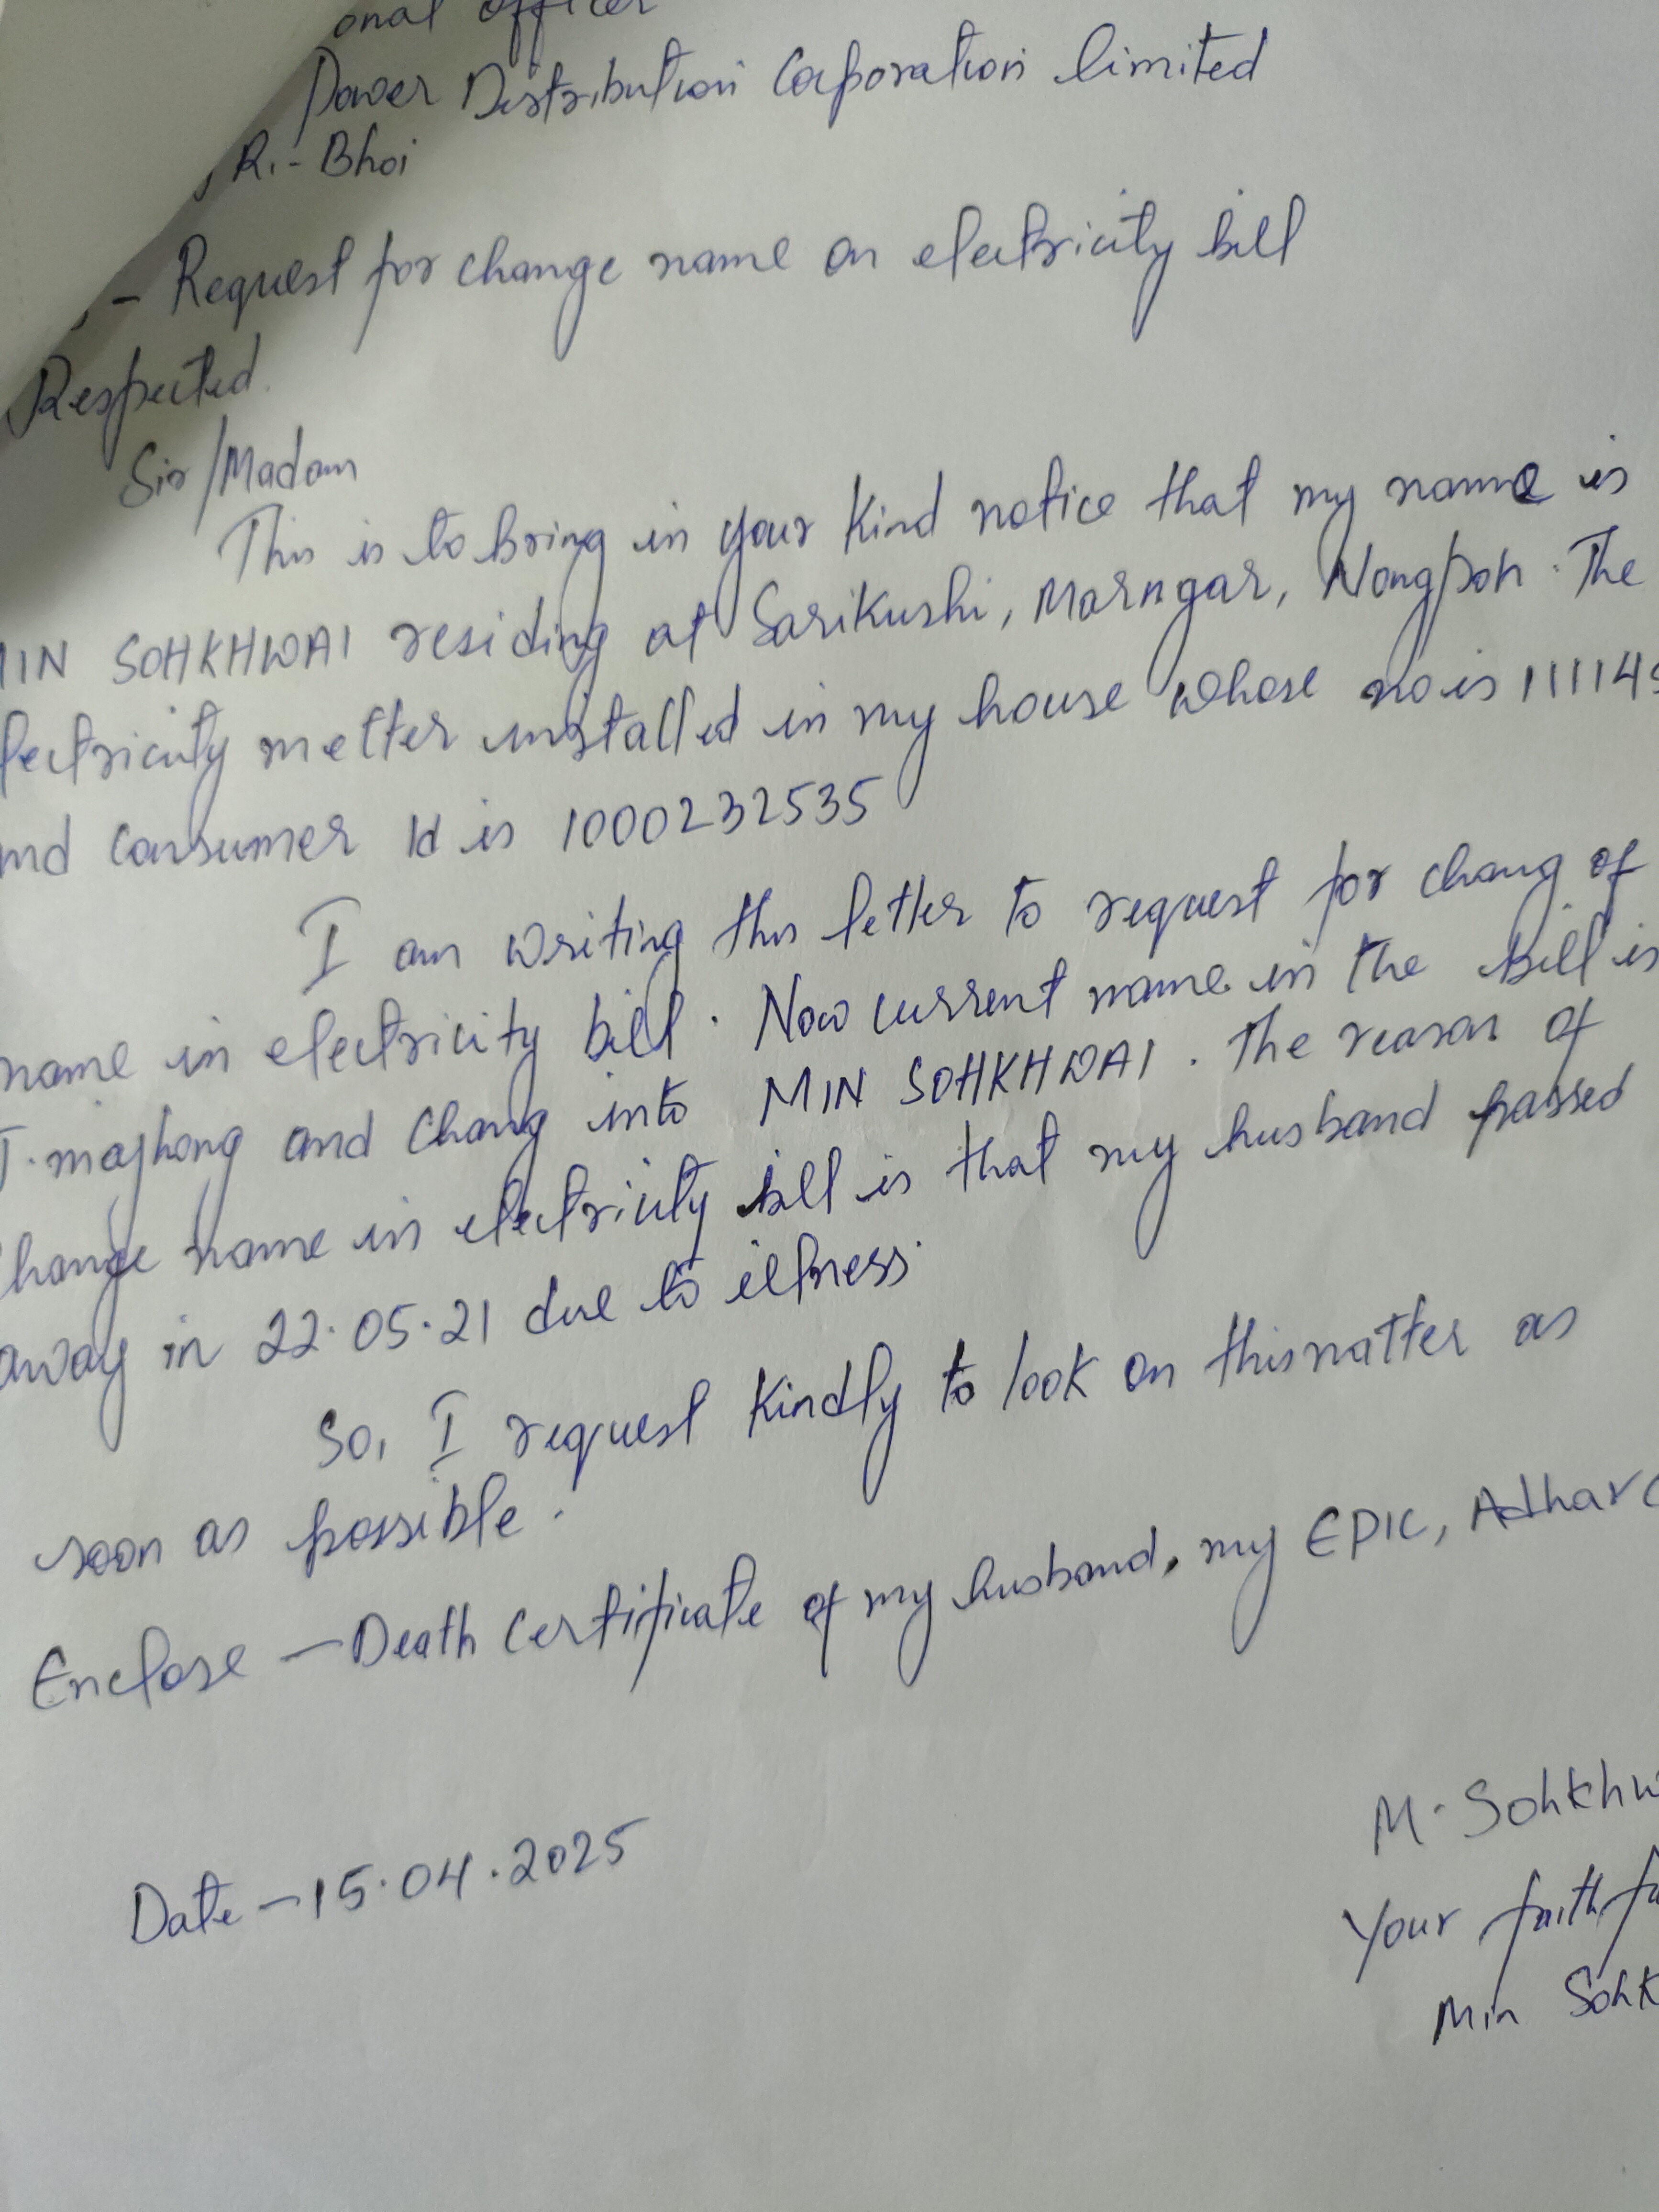 onal officer
Power Distribution Corporation limited
, Ri-Bhoi
- Request for change name on electricity bill
Respected
Sir/Madam
This is to bring in your kind notice that my name is
MIN SOHKHWAI residing at Sarikushi, Marngar, Nongpoh. The
lectricity metter installed in my house whose no is 111149
nd consumer Id is 1000232535
I am writing this letter to request for chang of
name in electricity bill. Now current name in the bill is
T. majhong and Chang into MIN SOHKHWAI. The reason of
hange name in electricity bill is that my husband passed
away in 22.05.21 due to illness.
So, I request kindly to look on this matter as
soon as possible.
Enclose - Death Certificate of my husband, my EPIC, Adhar
M. Sohkhw
Date - 15.04.2025
Your faithfu
Min Sohk